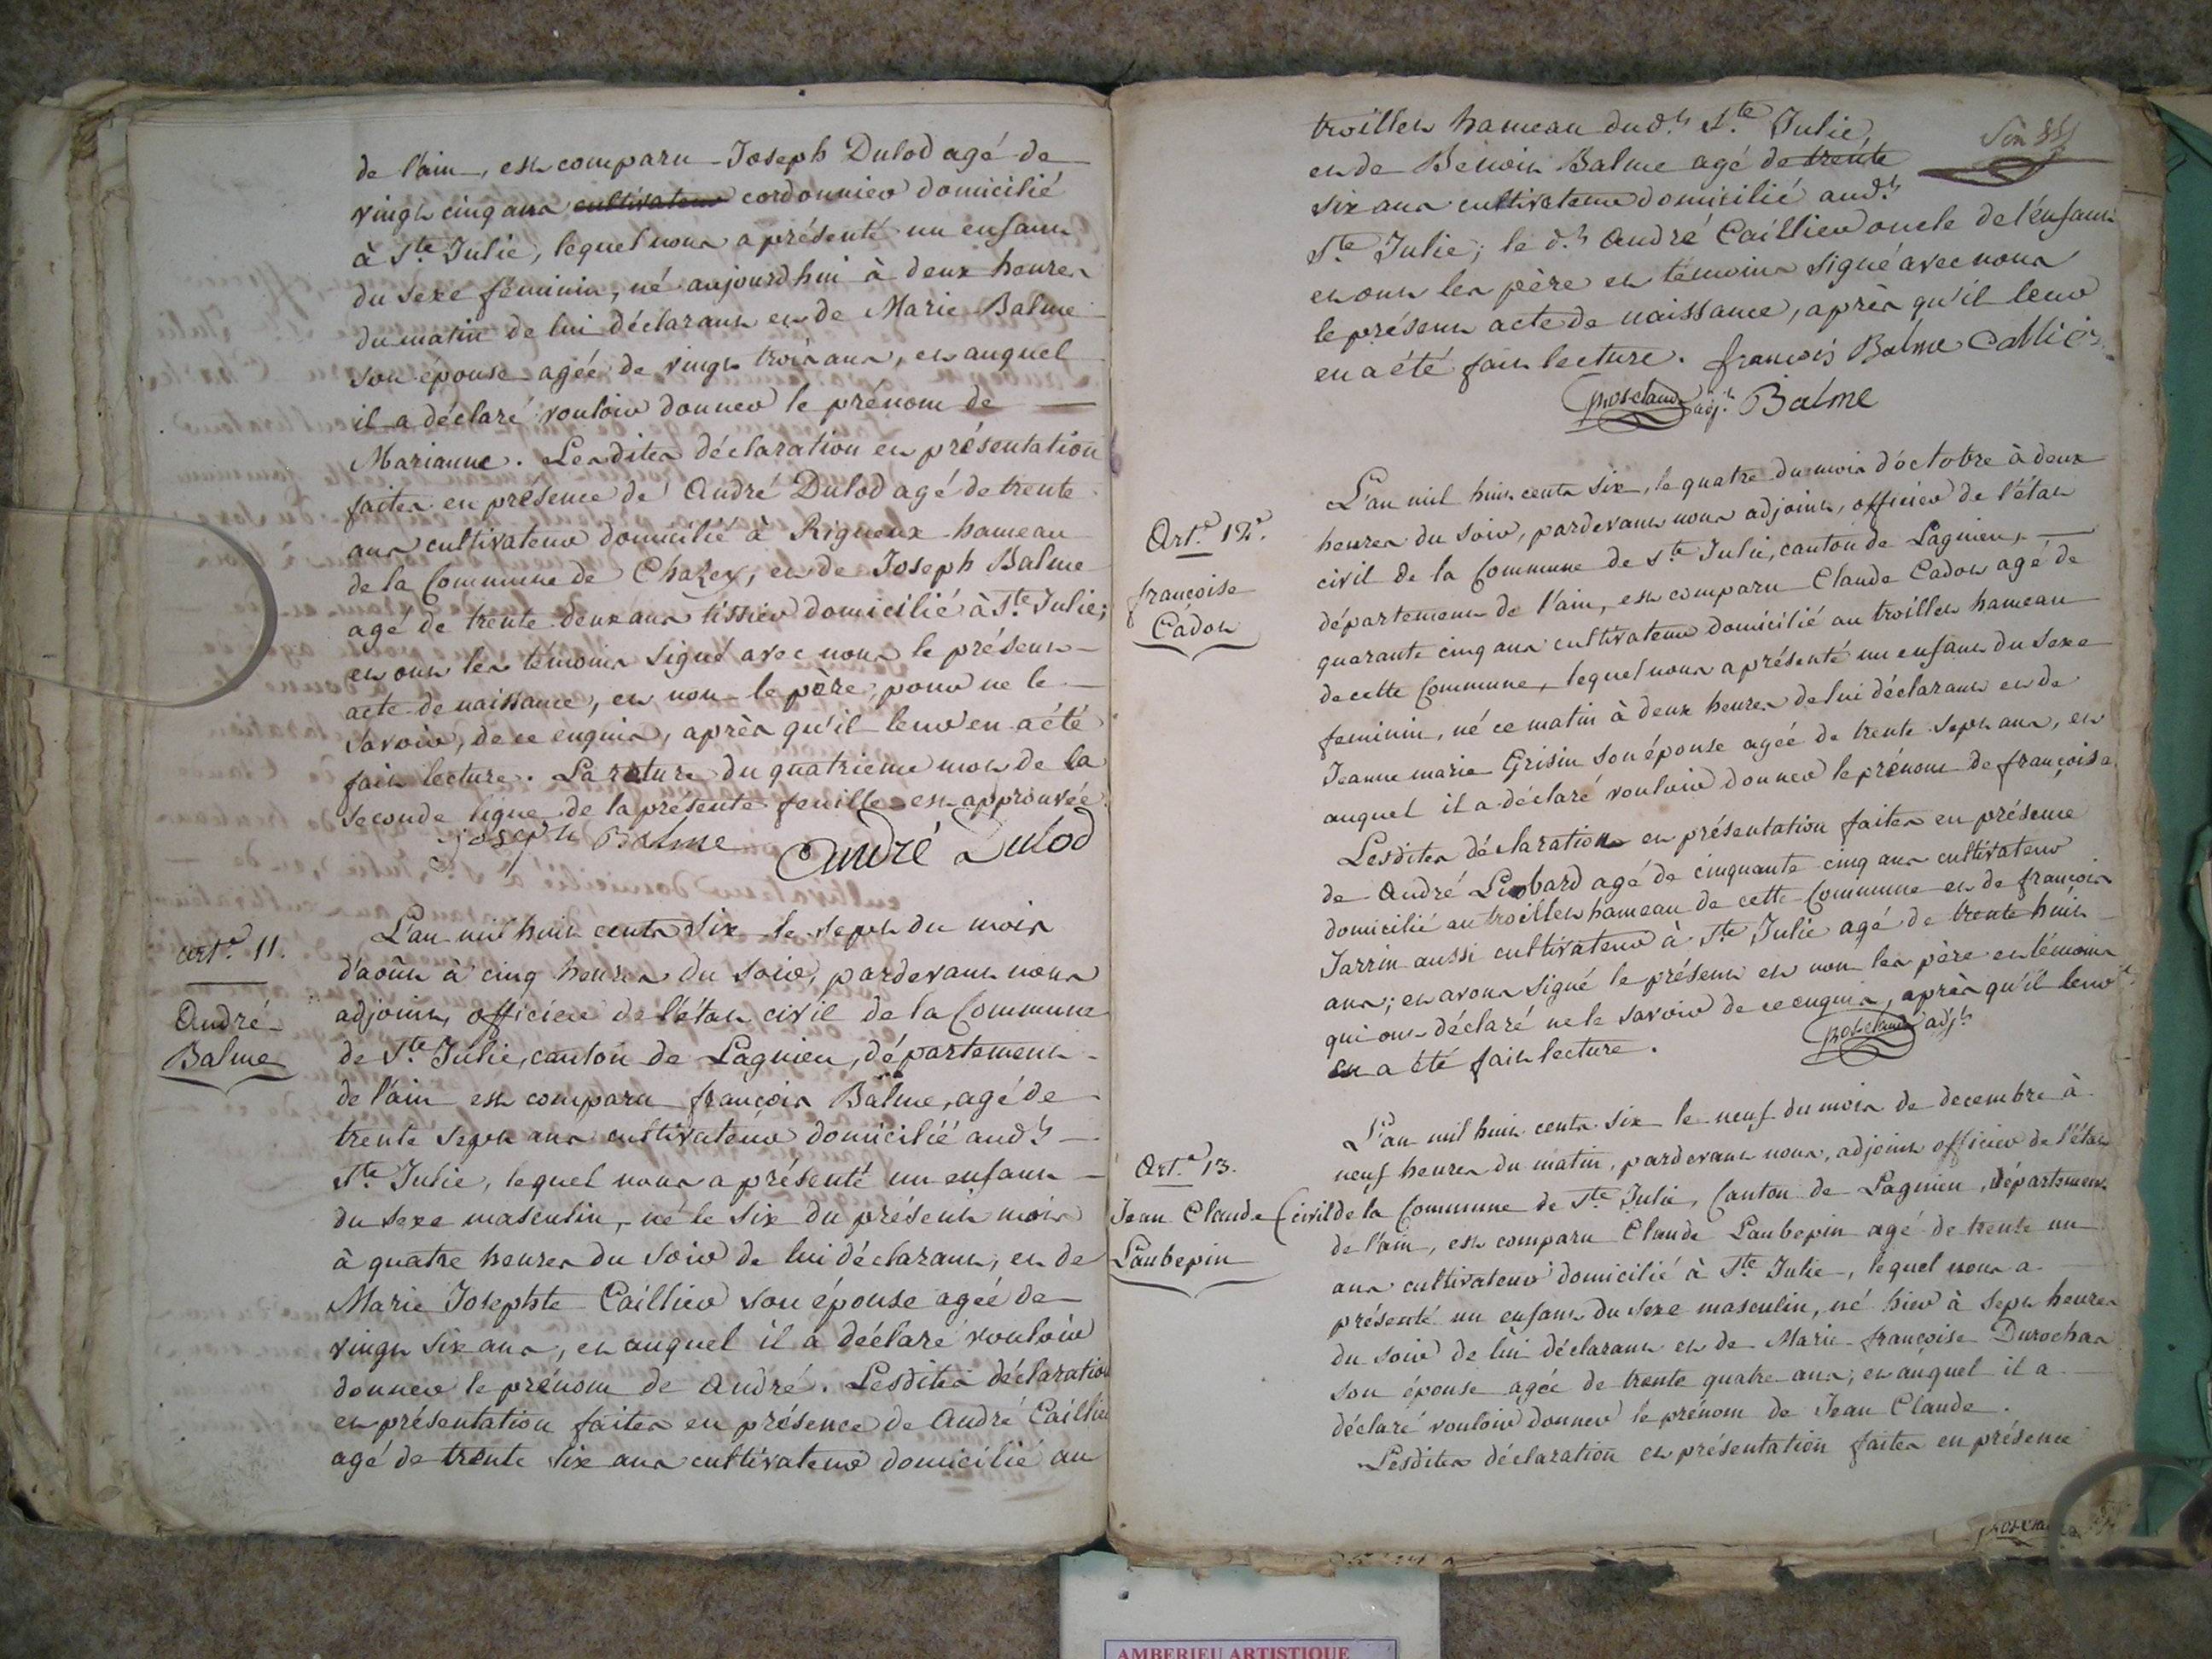 de l'ain, est comparu Joseph Dulod agé de
vingt cinq ans cultivateur cordonnier domicilié
à Ste. Julie, lequel nous a présenté un enfant
du sexe féminin, né aujourd'hui à deux heures
du matin de lui déclarant et de Marie Balme
son épouse agée de vingt trois ans, et auquel
il a déclaré vouloir donner le prénom de
Marianne. Lesdites déclaration et présentation
faites en présence de André Dulod agé de trente
ans cultivateur domicilié à Rigneux hameau
de la Commune de Chazey, et de Joseph Balme
agé de trente deux ans tissier domicilié à Ste. Julie;
et ont les témoins signé avec nous le présent
acte de naissance, et non le père, pour ne le
savoir, de ce enquis, après qu'il leur en a été
fait lecture. La rature du quatrieme mot de la
seconde ligne de la présente feuille est approuvée.
joseph Balme André Dulod
art.e 11.
André
Balme
L'an mil huit cents six le sept du mois
d'août à cinq heures du soir, pardevant nous
adjoint, officier de l'état civil de la Commune
de Ste. Julie, canton de Lagnieu, département
de l'ain est comparu françois Balme, agé de
trente sept ans cultivateur domicilié aud.t
Ste. Julie, lequel nous a présenté un enfant
du sexe masculin, né le six du présent mois
à quatre heures du soir de lui déclarant, et de
Marie Josephte Caillier son épouse agée de
vingt six ans, et auquel il a déclaré vouloir
donner le prénom de André. Lesdites déclaration
et présentation faites en présence de André Caillier
agé de trente six ans cultivateur domicilié au
troillet hameau dud.t Ste. Julie,
et de Benoit Balme agé de trente
six ans cultivateur domicilié aud.t
Ste. Julie; le d.t André Caillier oncle de l'enfant
et ont les père et témoins signé avec nous
le présent acte de naissance, après qu'il leur
en a été fait lecture. françois Balme Callier
adj.t Balme
Art.e 12.e
françoise
Cadot
L'an mil huit cents six, le quatre du mois d'octobre à deux
heures du soir, pardevant nous adjoint, officier de l'état
civil de la Commune de Ste. Julie, canton de Lagnieu,
département de l'ain, est comparu Claude Cadot agé de
quarante cinq ans cultivateur domicilié au troillet hameau
de cette Commune, lequel nous a présenté un enfant du sexe
feminin, né ce matin à deux heures de lui déclarant et de
Jeanne marie Grisin son épouse agée de trente sept ans, et
auquel il a déclaré vouloir donner le prénom de françoise
Lesdites déclaration et présentation faites en présence
de André Liobard agé de cinquante cinq ans cultivateur
domicilié au troillet hameau de cette Commune et de françois
Jarrin aussi cultivateur à Ste. Julie agé de trente huit
ans; et avons signé le présent et non les père et témoins
qui ont déclaré ne le savoir de ce enquis, après qu'il leur
en a été fait lecture. adj.t
Art.e 13.
Jean Claude
Laubepin
L'an mil huit cents six le neuf du mois de decembre à
neuf heures du matin, pardevant nous, adjoint officier de l'état
Civil de la Commune de Ste. Julie, Canton de Lagnieu, département
de l'ain, est comparu Claude Laubepin agé de trente un
ans cultivateur domicilié à Ste. Julie, lequel nous a
présenté un enfant du sexe masculin, né hier à sept heures
du soir de lui déclarant et de Marie françoise Durochas
son épouse agée de trente quatre ans; et auquel il a
déclaré vouloir donner le prénom de Jean Claude.
Lesdites déclaration et présentation faites en présence
AMBERIEU ARTISTIQUE